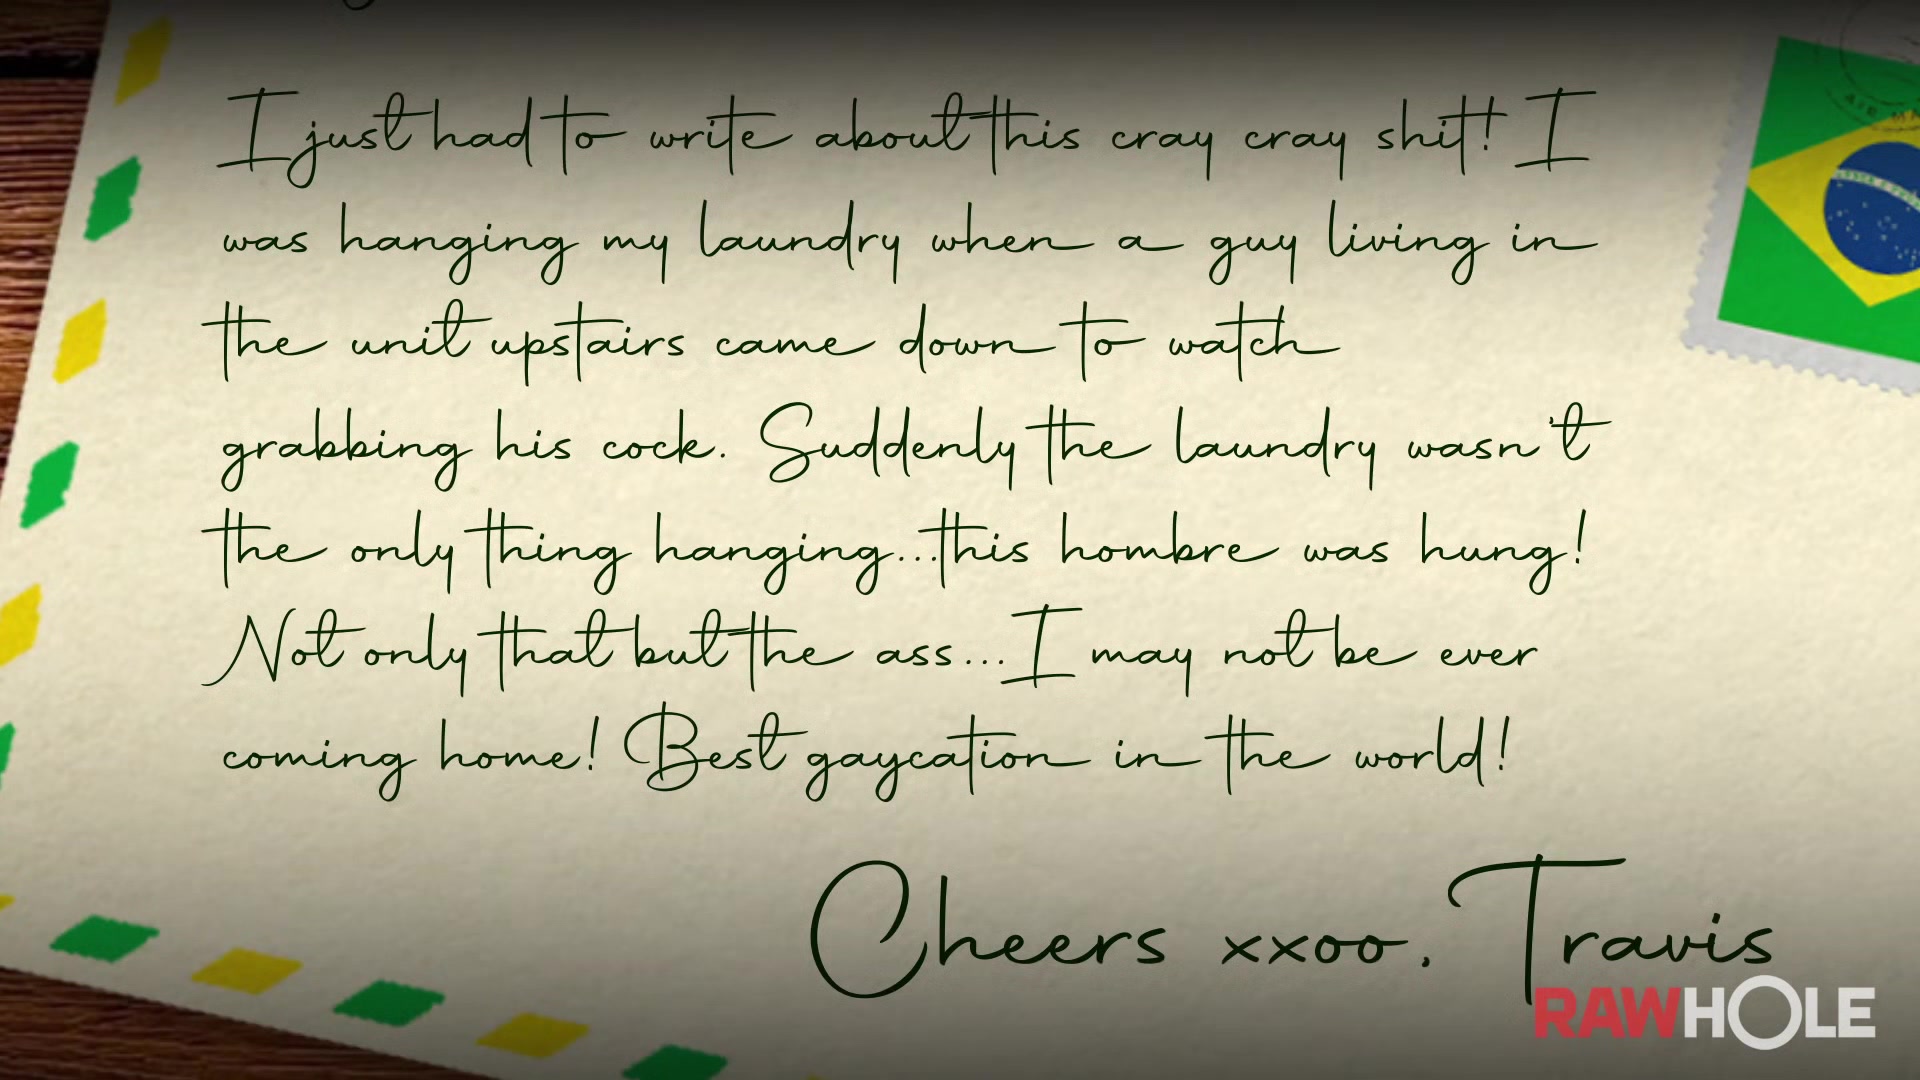 I just had to write about this cray cray shit! I
was hanging my laundry when a guy living in
the unit upstairs came down to watch
grabbing his cock. Suddenly the laundry wasn't
the only thing hanging...this hombre was hung!
Not only that but the ass...I may not be ever
coming home! Best gaycation in the world!
Cheers xxoo, Travis
RAWHOLE